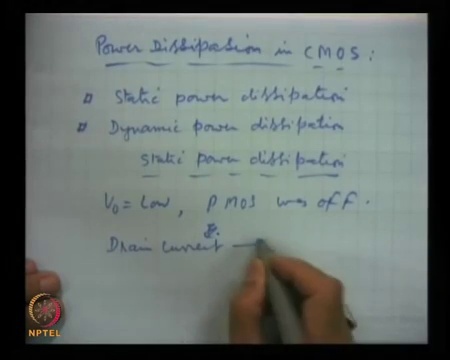 Power Dissipation in CMOS:
Static power dissipation
Dynamic power dissipation
static power dissipation
V0 = Low, PMOS was off.
Drain current —
NPTEL